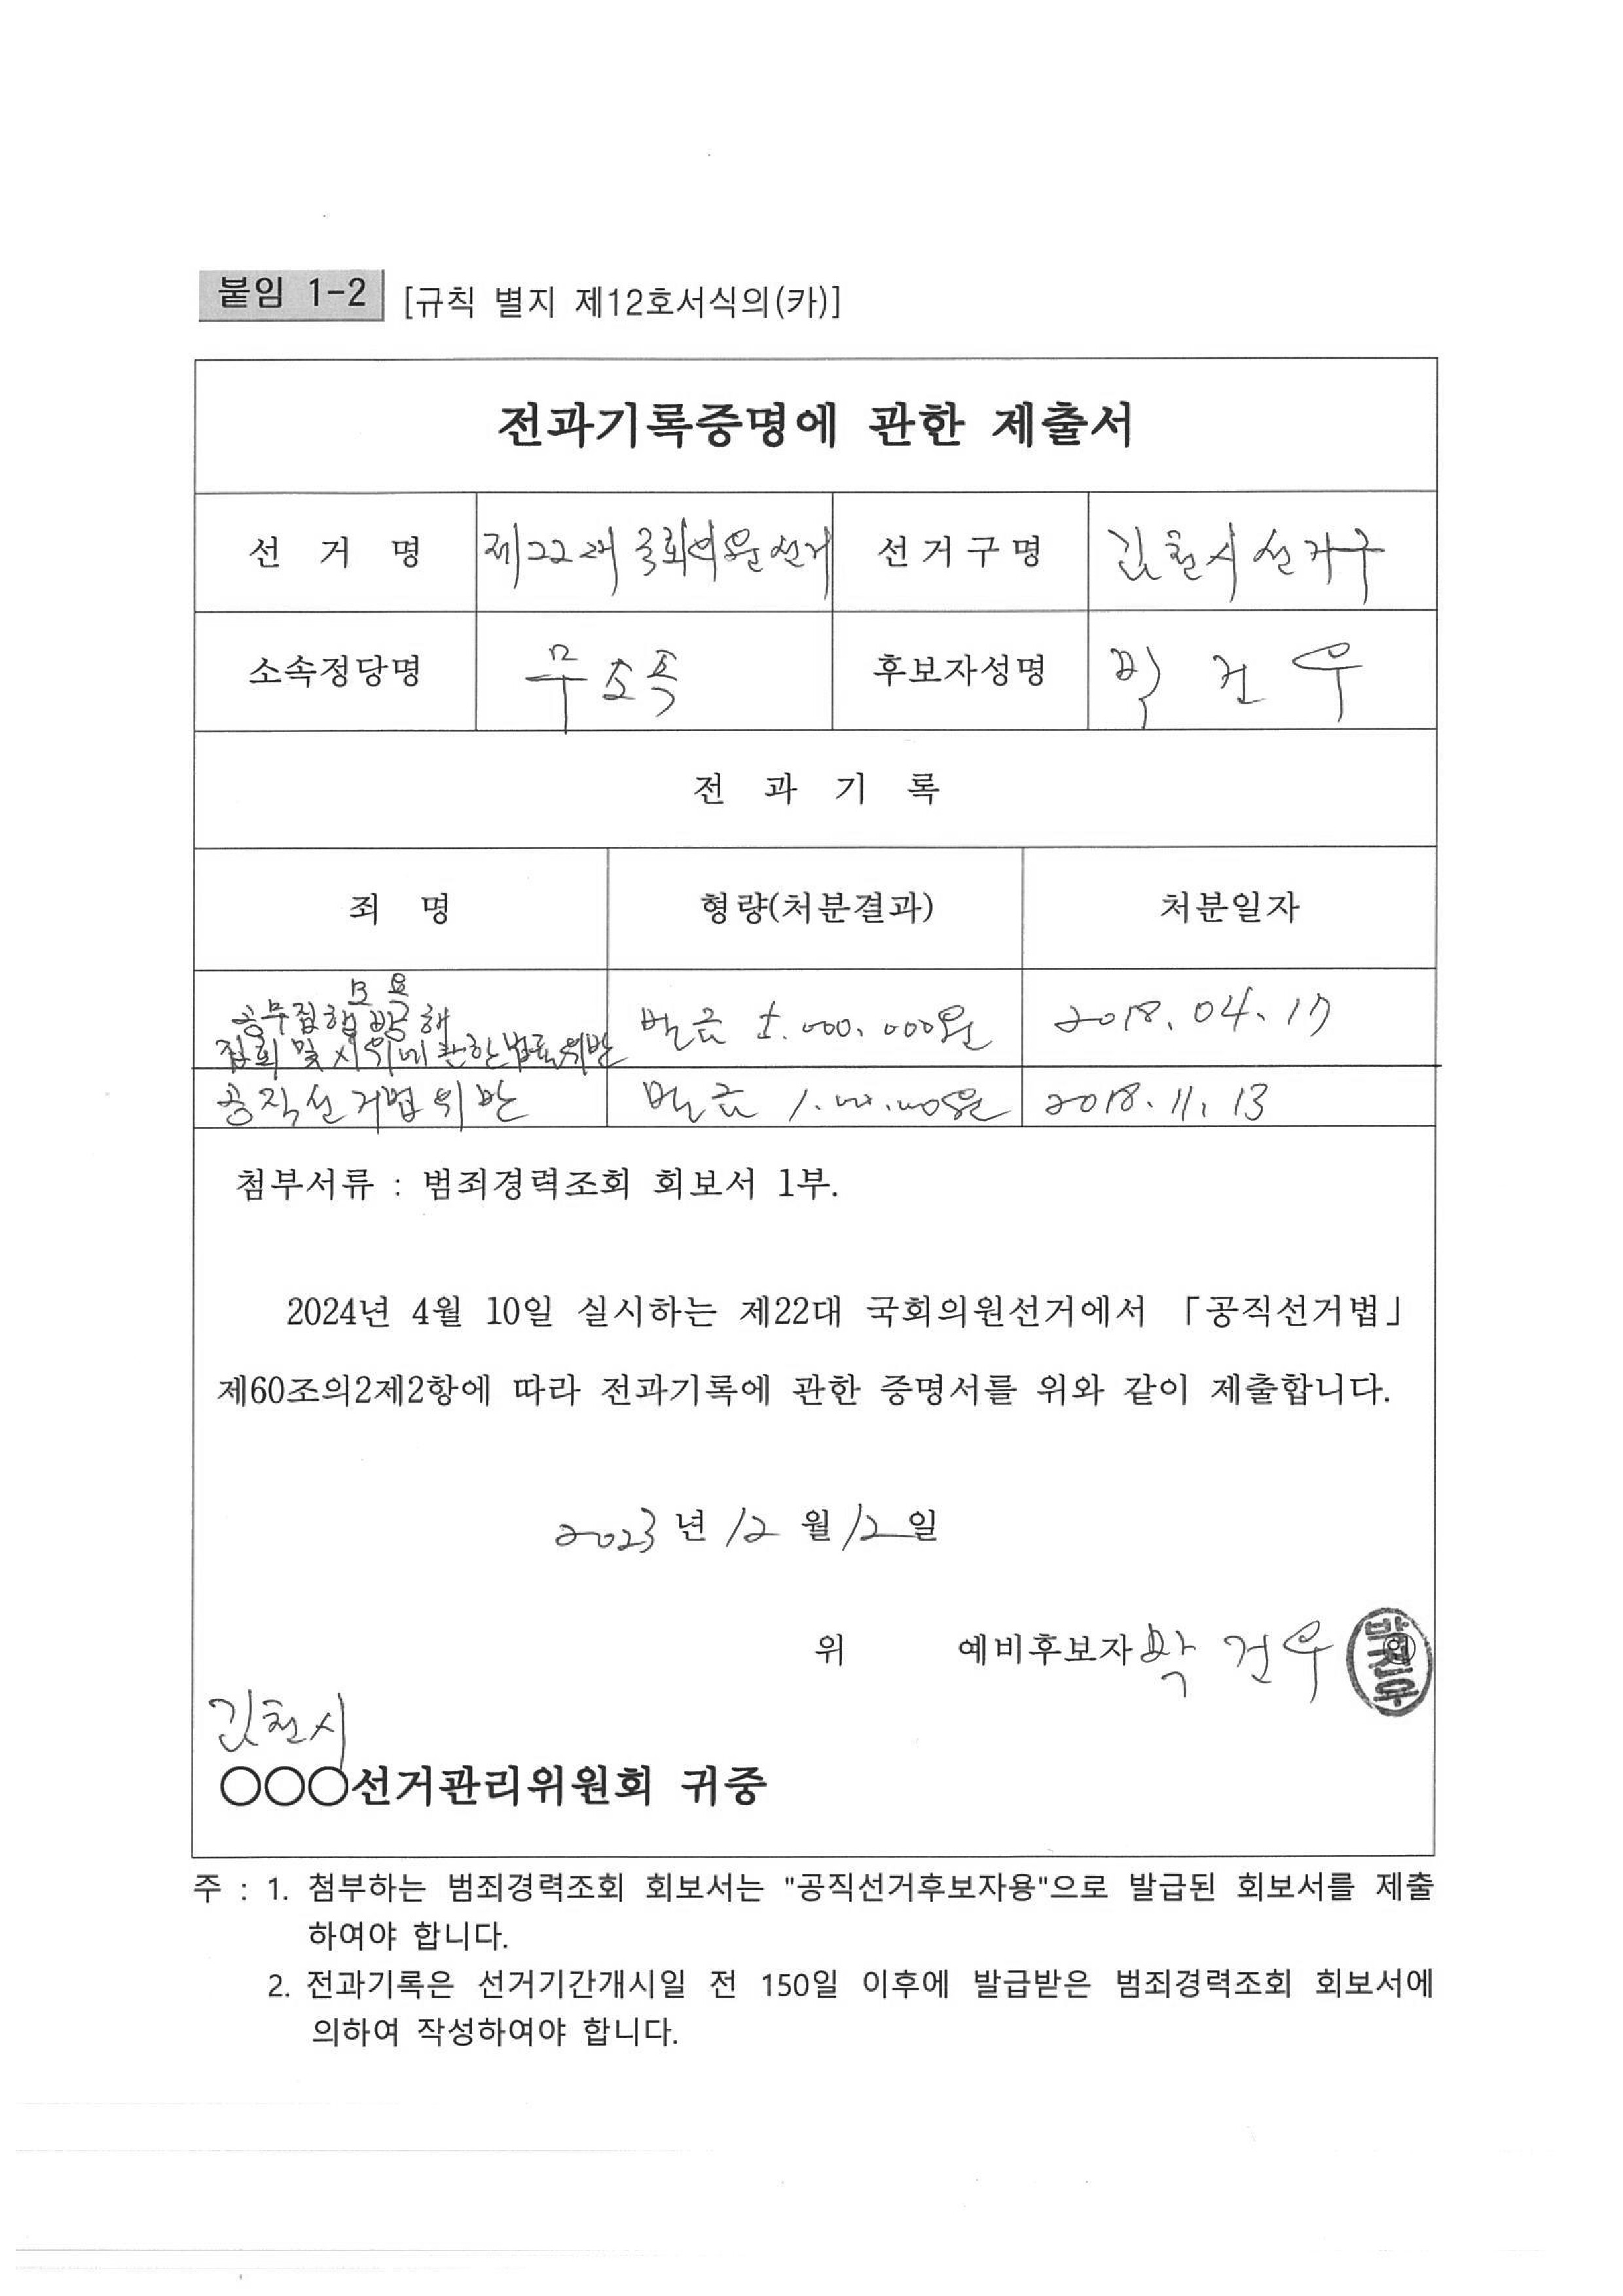 붙임 1-2 [규칙 별지 제12호서식의(카)]
전과기록증명에 관한 제출서
선 거 명 제22대 국회의원선거 선거구명 김천시선거구
소속정당명 무소속 후보자성명 박건우
전 과 기 록
죄 명 형량(처분결과) 처분일자
공무집행방해
집회 및 시위에 관한 법률위반 벌금 000,000원 2018.04.17
공직선거법위반 벌금 1.000.000원 2018.11.13
첨부서류 : 범죄경력조회 회보서 1부.
2024년 4월 10일 실시하는 제22대 국회의원선거에서 「공직선거법」
제60조의2제2항에 따라 전과기록에 관한 증명서를 위와 같이 제출합니다.
2023년 12월 12일
위 예비후보자 박건우 박건우
김천시
○○○선거관리위원회 귀중
주 : 1. 첨부하는 범죄경력조회 회보서는 "공직선거후보자용"으로 발급된 회보서를 제출
하여야 합니다.
2. 전과기록은 선거기간개시일 전 150일 이후에 발급받은 범죄경력조회 회보서에
의하여 작성하여야 합니다.